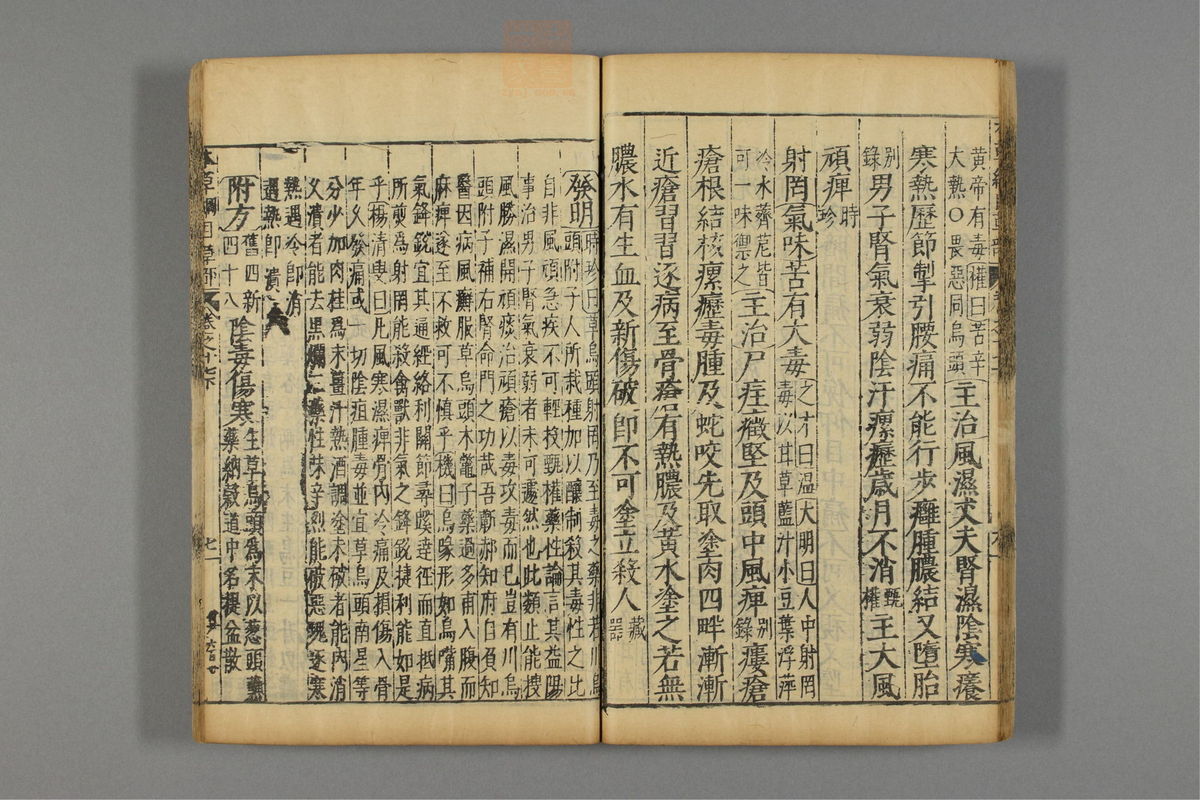 黃帝有毒權曰苦辛
大熱○畏惡同烏頭
主治風濕丈夫腎濕陰寒癢
寒熱歷節掣引腰痛不能行步癰腫膿結又墮胎
別
錄
男子腎氣衰弱陰汗瘰癧歲月不消
甄
權
主大風
頑痺
時
珍
射罔氣味苦有大毒
之才曰溫大明曰人中射罔
毒以甘草藍汁小豆葉浮萍
冷水薺苨皆
可一味禦之
主治尸疰癥堅及頭中風痺
別
錄
瘻瘡
瘡根結核瘰癧毒腫及蛇咬先取塗肉四畔漸漸
近瘡習習逐病至骨瘡有熱膿及黃水塗之若無
膿水有生血及新傷破即不可塗立殺人
藏
器
發明
時珍曰草烏頭射罔乃至毒之藥非若川烏
頭附子人所栽種加以釀制殺其毒性之比
自非風頑急疾不可輕投甄權藥性論言其益陽
事治男子腎氣衰弱者未可遽然也此類止能搜
風勝濕開頑痰治頑瘡以毒攻毒而已豈有川烏
頭附子補右腎命門之功哉吾蘄郝知府自負知
醫因病風癬服草烏頭木鱉子藥過多甫入腹而
麻痺遂至不救可不慎乎機曰烏喙形如烏嘴其
氣鋒銳宜其通經絡利關節尋蹊達徑而直抵病
所煎為射罔能殺禽獸非氣之鋒銳捷利能如是
乎楊清叟曰凡風寒濕痺骨內冷痛及損傷入骨
年久發痛或一切陰疽腫毒並宜草烏頭南星等
分少加肉桂為末薑汁熱酒調塗未破者能內消
久潰者能去黑爛二藥性味辛烈能破惡塊逐寒
熱遇冷即消
遇熱即潰
附方
舊四新
四十八
陰毒傷寒
生草烏頭為末以蔥頭蘸
藥納穀道中名提盆散
本草綱目草部 卷之十七下
七一